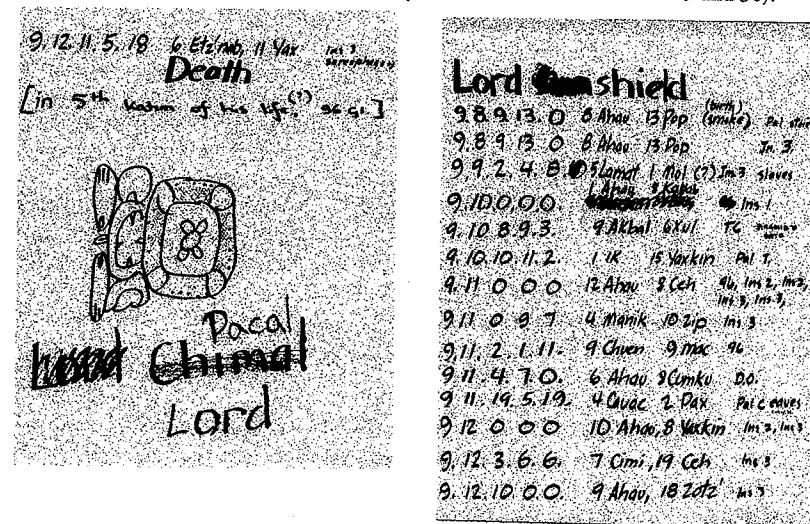 9.12.11.5.18 6 Etz'nab, 11 Yax Ins 3
sarcophagus
Death
[in 5th katun of his life, (?) 96 G1.]
Pacal
Chimal
Lord
Lord shield
9.8.9.13.0 8 Ahau 13 Pop (birth) (smoke) Pal stair
9.8.9.13.0 8 Ahau 13 Pop In. 3
9.9.2.4.8. 5 Lamat 1 Mol (?) Ins 3 slaves
9.10.0.0.0 1 Ahau 8 Kayab Ins 1
9.10.8.9.3. 9 Akbal 6 Xul TC
9.10.10.11.2. 1 IK 15 Yaxkin Pal T.
9.11 0 0 0 12 Ahau 8 Ceh 96, Ins 2, Ins 3,
Ins 3, Ins 3,
9.11 0 9 7 4 Manik 10 Zip Ins 3
9.11.2.1.11. 9 Chuen 9 mac 96
9.11.4.7.0. 6 Ahau 8 Cumku D.O.
9.11.19.5.19. 4 Cauac 2 Pax Pal c eaves
9.12 0 0 0 10 Ahau, 8 Yaxkin Ins 2, Ins 3
9.12.3.6.6. 7 Cimi, 19 Ceh Ins 3
9.12.10 0 0. 9 Ahau, 18 Zotz' Ins 3